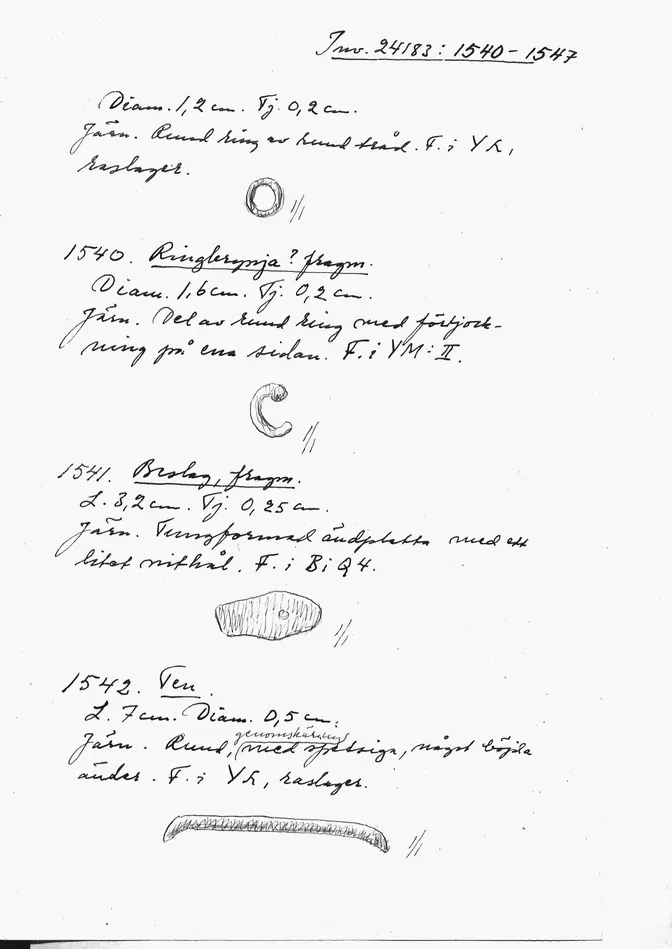 Inv. 24183: 1540-1547
Diam. 1,2 cm. Tj. 0,2 cm.
Järn. Rund ring av rund tråd. F. i YK,
raslager.
1/1
1540. Ringbrynja? fragm.
Diam. 1,6 cm. Tj. 0,2 cm.
Järn. Del av rund ring med förtjock-
ning på ena sidan. F. i YM:II.
1/1
1541. Beslag, fragm.
L. 3,2 cm. Tj. 0,25 cm.
Järn. Tungformad ändplatta med ett
litet nithål. F. i BiQ4.
1/1
1542. Ten.
L. 7 cm. Diam. 0,5 cm.
genomskärning
Järn. Rund, med spetsiga, något böjda
änder. F. i YK, raslager.
1/1